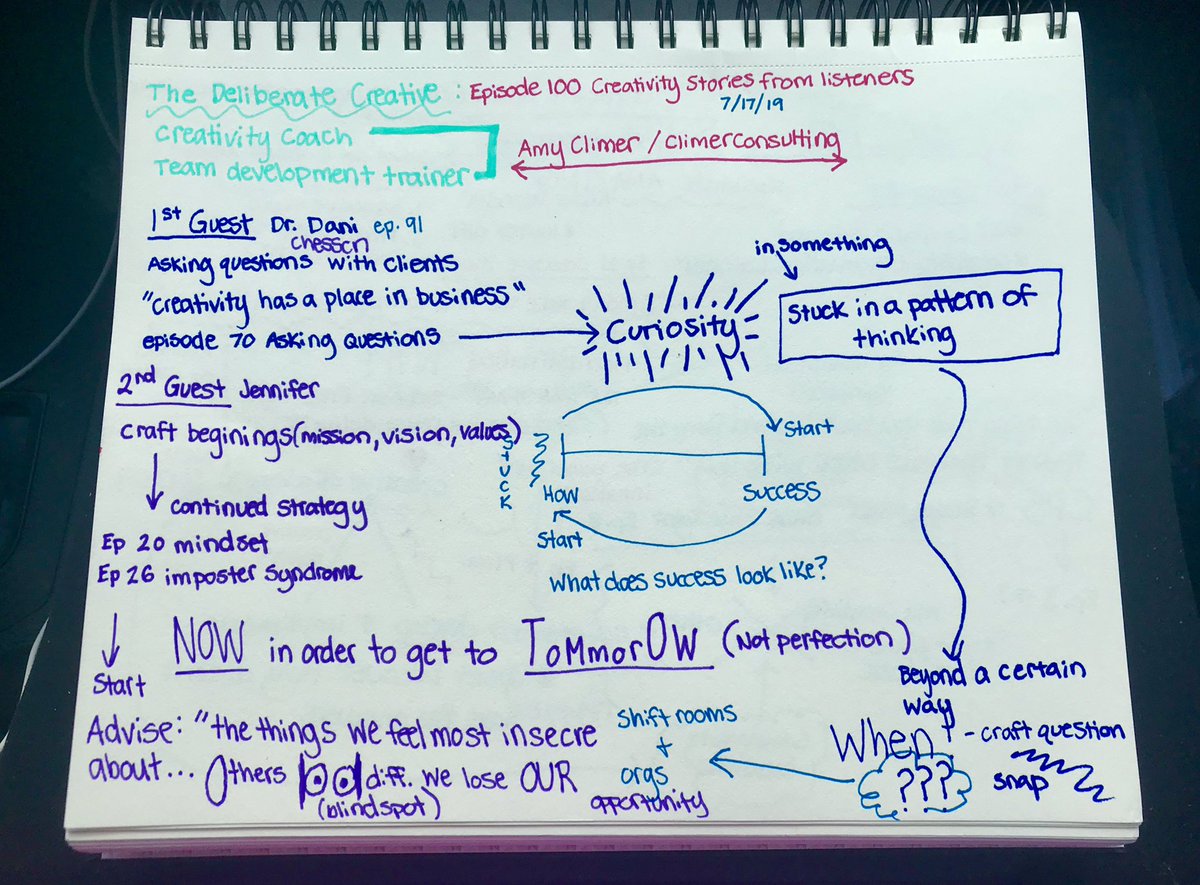 The Deliberate Creative : Episode 100 Creativity Stories from listeners
7/17/19
Creativity Coach
Team development trainer
Amy Climer / Climerconsulting
1st Guest Dr. Dani ep. 91
Chesscn
Asking questions with clients
"creativity has a place in business"
episode 70 Asking Questions
Curiosity
in something
Stuck in a pattern of
thinking
2nd Guest Jennifer
craft beginings (mission, vision, values)
continued strategy
Ep 20 mindset
Ep 26 imposter syndrome
Stuck
Start
How
Success
Start
What does success look like?
Start
NOW in order to get to TommorOw (Not perfection)
Advise: "the things we feel most insecre
about... Others diff. We lose OUR
(blindspot)
Shift rooms
+
orgs
opportunity
Beyond a certain
way
When - craft question
???
snap